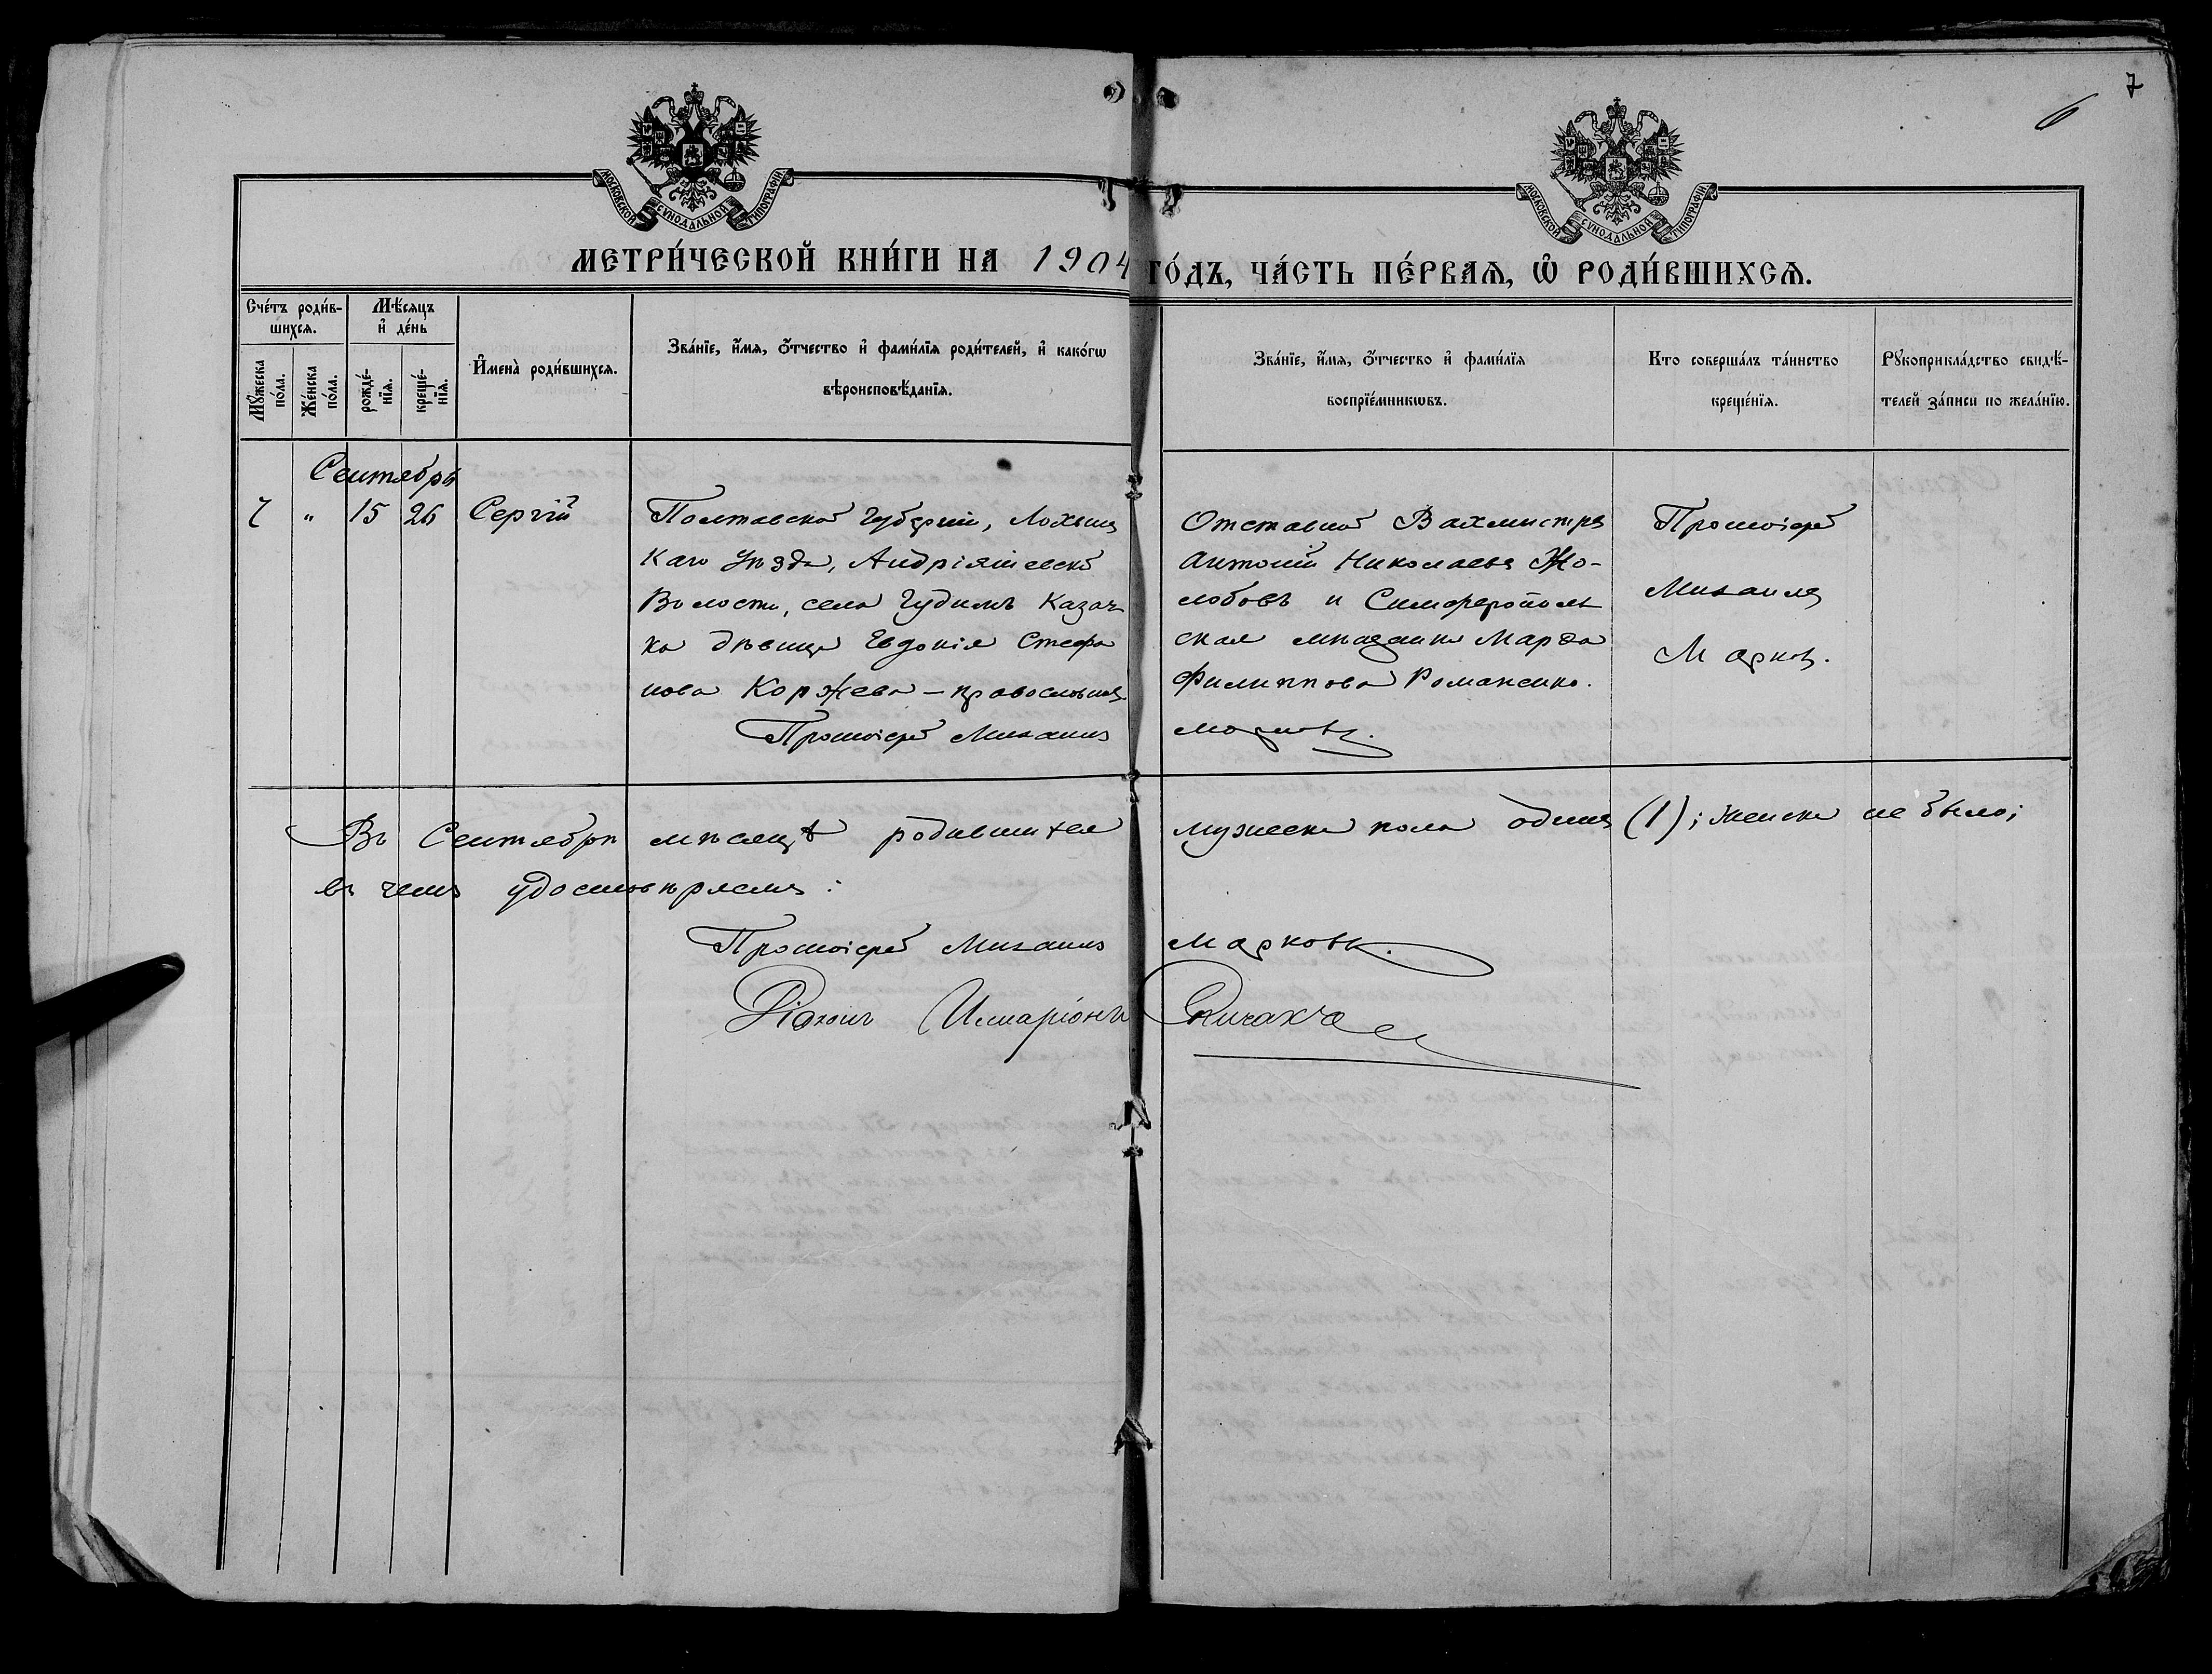 7
6
МОСКОВСКОЙ СѴНОДАЛЬНОЙ ТИПОГРАФІИ
МОСКОВСКОЙ СѴНОДАЛЬНОЙ ТИПОГРАФІИ
МЕТРИ́ЧЕСКОЙ КНИ́ГИ НА 1904 ГО́ДЪ, ЧА́СТЬ ПЕ́РВАЯ, Ѡ҆ РОДИ́ВШИХСЯ.
Сче́тъ роди́в-
шихся.
Мꙋ́жеска
по́ла.
Же́нска
по́ла.
Мѣ́сяцъ
и҆ де́нь
рожде́-
нїя.
креще́-
нїя.
И҆мена̀ роди́вшихся.
Зва́нїе, и҆́мя, ѻ҆́тчество и҆ фами́лїя роди́телей, и҆ како́гѡ
вѣроисповѣ́данїя.
Зва́нїе, и҆́мя, ѻ҆́тчество и҆ фами́лїя
воспрїе́мникѡвъ.
Кто соверша́лъ та́инство
креще́нїя.
Рꙋкоприкла́дство свидѣ́-
телей за́писи по жела́нїю.
Сентябрь
7 " 15 26 Сергій
Полтавской Губерніи, Лохвиц
каго Уѣзда, Андріяшевской
Волости, села Гудимъ Казач
ка дѣвица Евдокія Стефа
нова Коржева – православная.
Протоіерей Михаилъ
Отставной Вахмистръ
Антоній Николаевъ Жо-
лобовъ и Симферополь
ская мѣщанка Марѳа
Филиппова Романенко.
Марковъ.
Протоіерей
Михаилъ
Марковъ.
Въ Сентябрѣ мѣсяцѣ родившихся мужеска пола одинъ (1); женска не было;
въ чемъ удостовѣряемъ:
Протоіерей Михаилъ Марковъ.
Діаконъ Иларіонъ